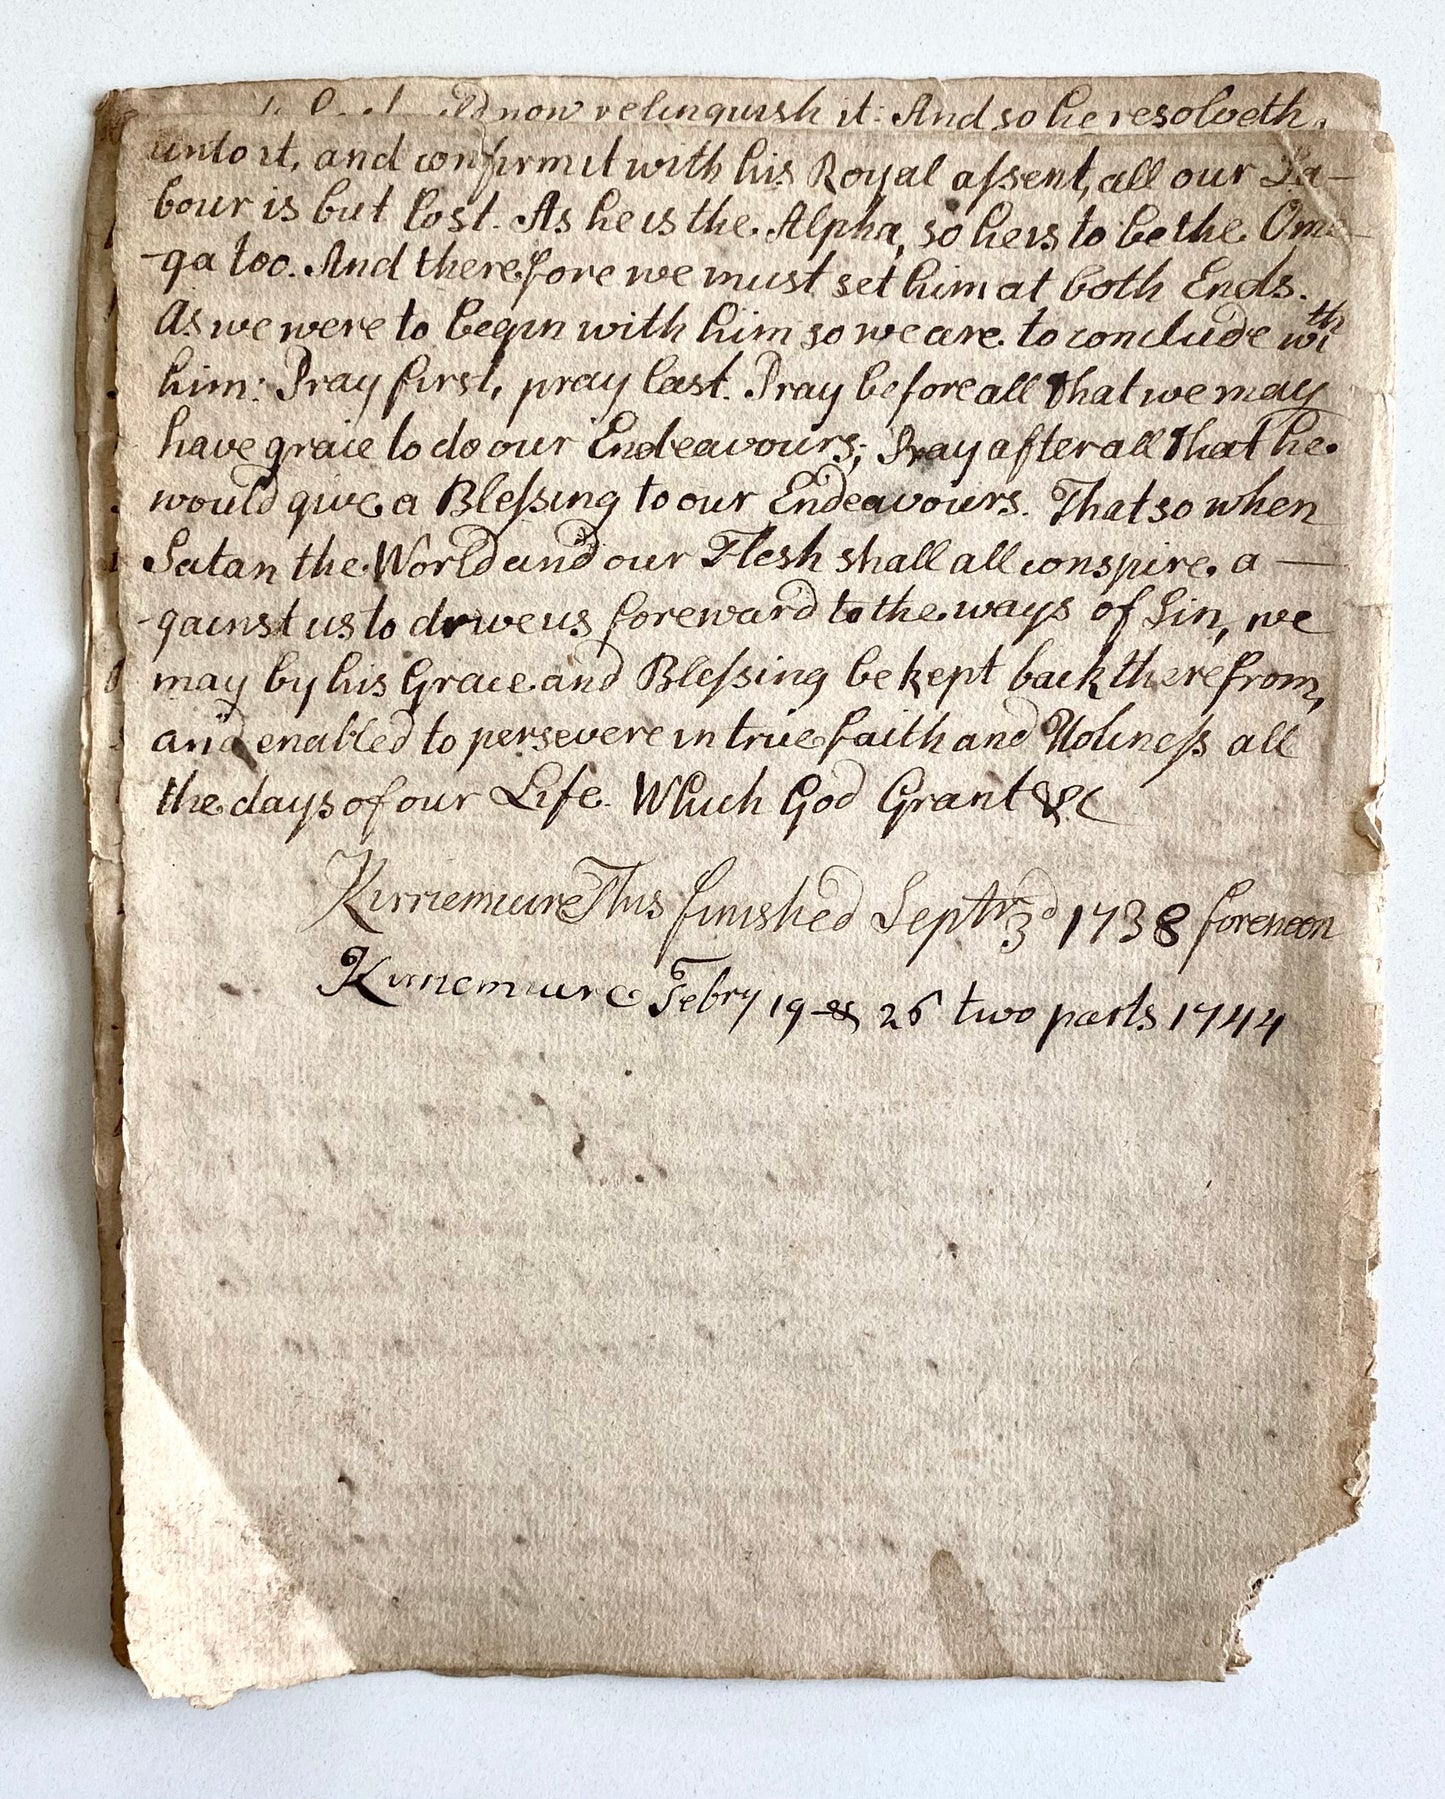 now relinquish it: And so he resolveth,
unto it, and confirm it with his Royal aſsent, all our La-
bour is but lost. As he is the Alpha, so he is to be the Ome-
-ga too. And therefore we must set him at both Ends.
As we were to begin with him so we are to conclude wth
him: Pray first, pray last. Pray before all that we may
have graice to do our Endeavours; Pray after all that he
would give a Bleſsing to our Endeavours. That so when
Satan the World and our Flesh shall all conspire a—
-gainst us to drive us foreward to the ways of Sin, we
may by his Graice and Bleſsing be kept back therefrom,
and enabled to persevere in true faith and Holineſs all
the days of our Life. Which God Grant &c
Kirriemuire This finished Septr 3d 1738 forenoon
Kirriemuire Febry 19 & 26 two parts 1744